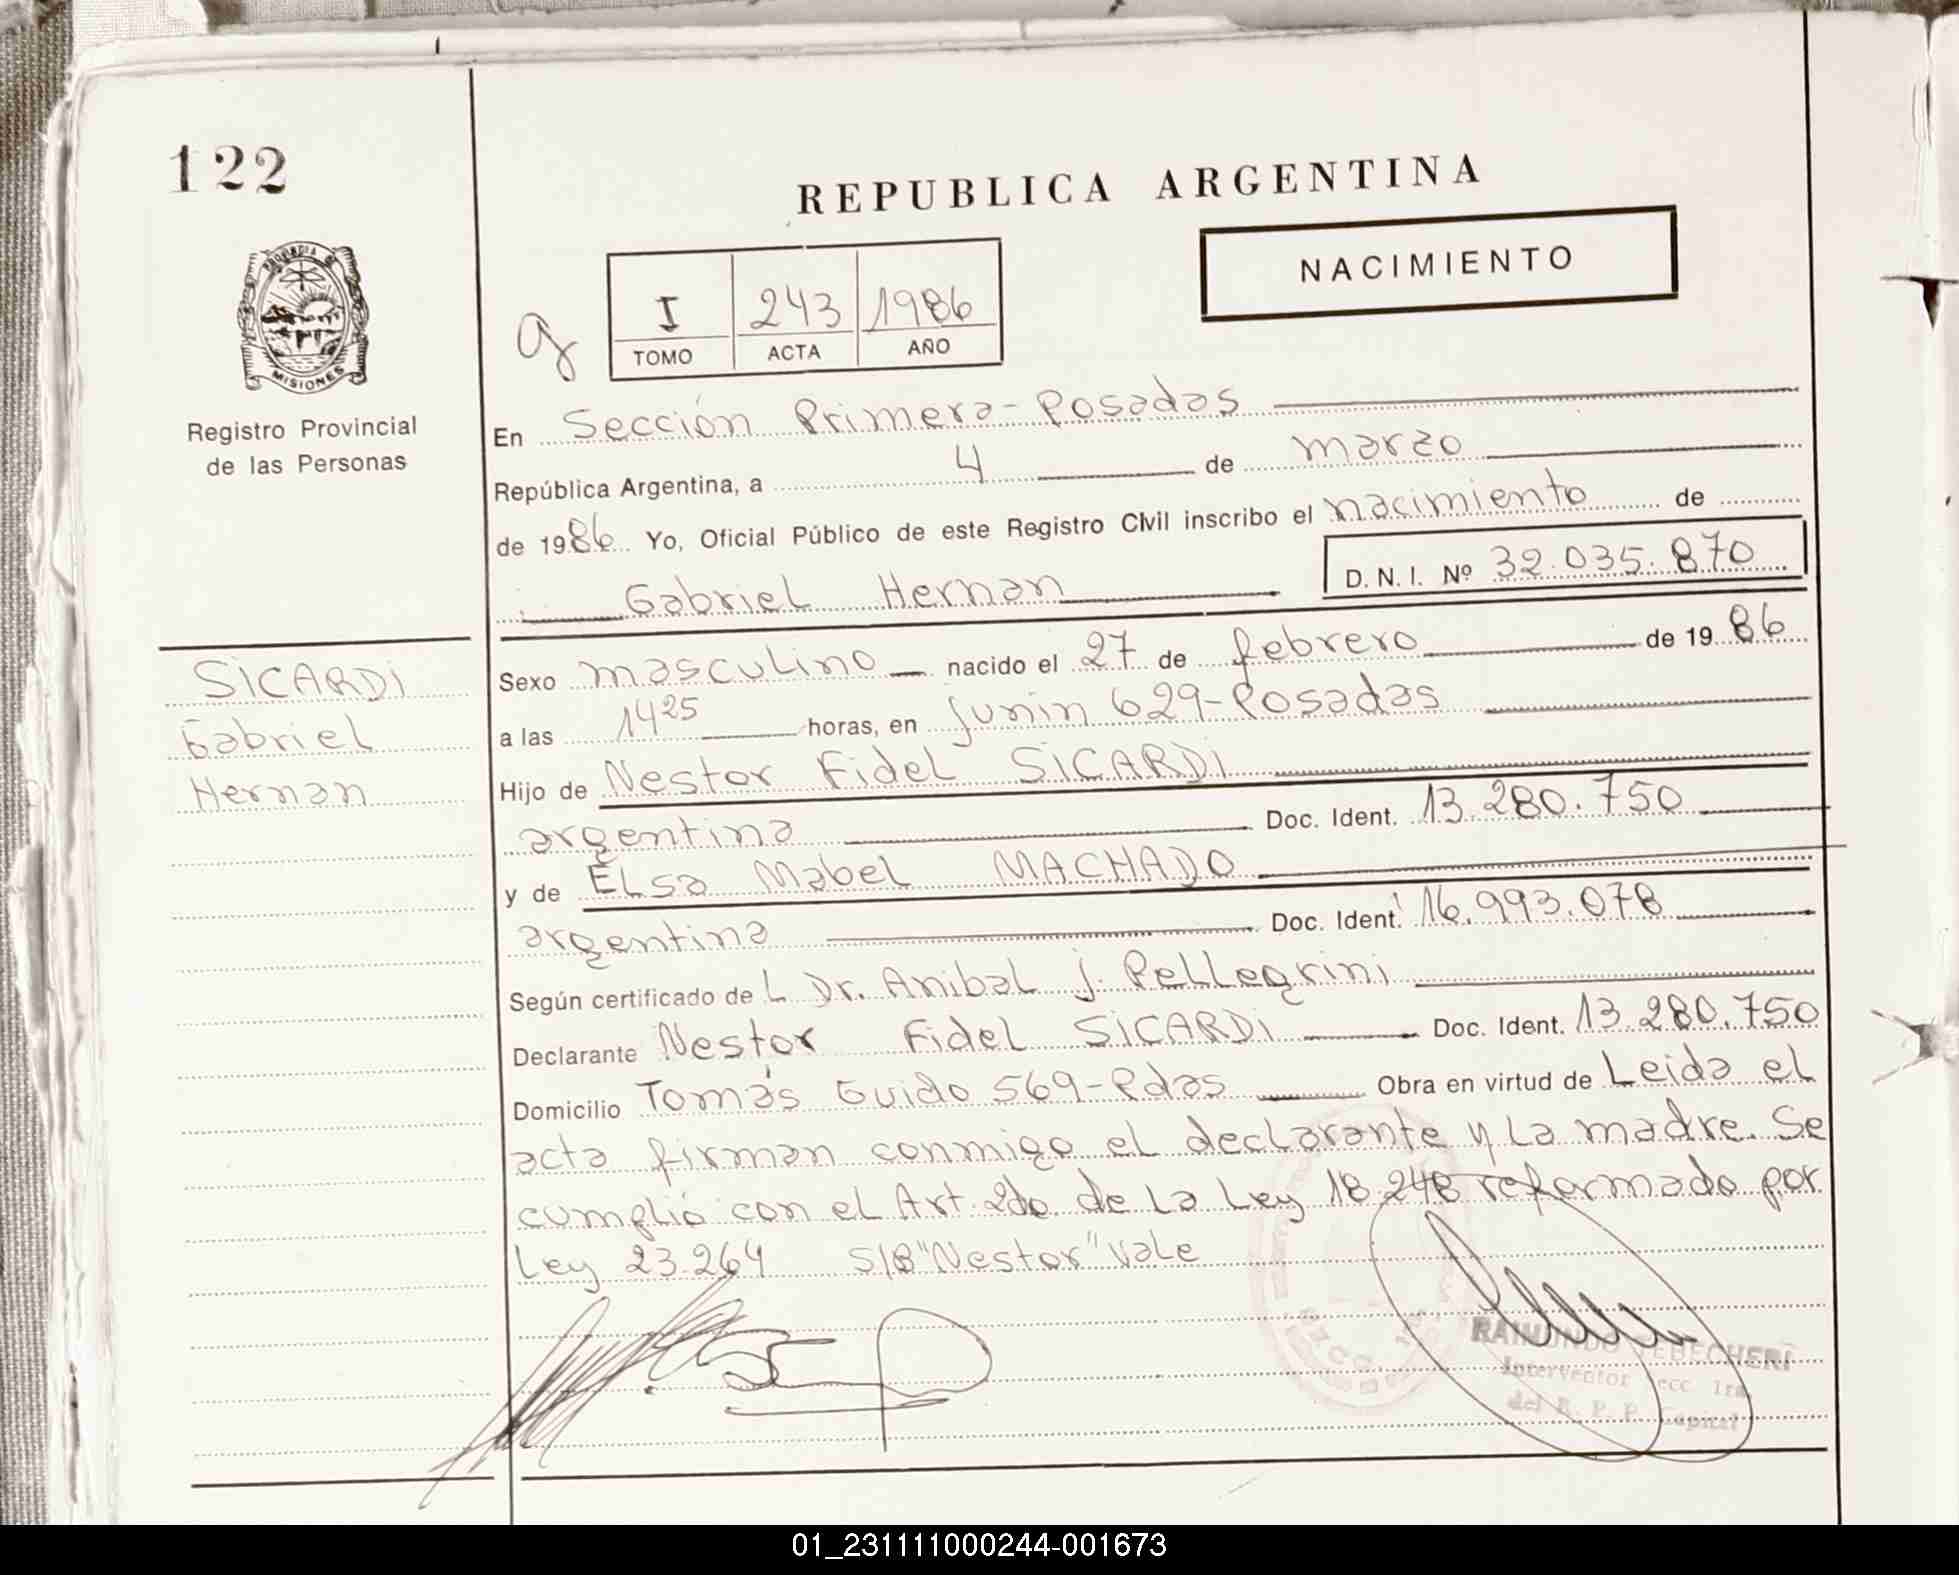 122
REPUBLICA ARGENTINA
NACIMIENTO
PROVINCIA DE
MISIONES
Registro Provincial
de las Personas
g
I 243 1986
TOMO ACTA AÑO
En Sección Primera-Posadas
República Argentina, a 4 de marzo
de 1986 Yo, Oficial Público de este Registro Civil inscribo el nacimiento de
Gabriel Hernan D. N. I. Nº 32.035.870
SICARDI
Gabriel
Hernan
Sexo masculino nacido el 27 de febrero de 1986
a las 14 25 horas, en Junin 629-Posadas
Hijo de Nestor Fidel SICARDI
argentina Doc. Ident. 13.280.750
y de Elsa Mabel MACHADO
argentina Doc. Ident. 16.993.078
Según certificado de L Dr. Anibal J. Pellegrini
Declarante Nestor Fidel SICARDI Doc. Ident. 13.280.750
Domicilio Tomás Guido 569-Pdas Obra en virtud de Leida el
acta firman conmigo el declarante y la madre. Se
cumplió con el Art. 2do. de la Ley 18.248 reformado por
Ley 23.264 S/B "Nestor" Vale
RAIMUNDO TEBECHERI
Interventor Secc 1ra
del R. P. P. Capital
01_231111000244-001673